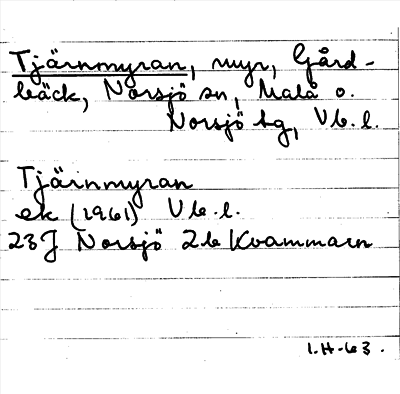 Tjärnmyran, myr, Gård-
bäck, Norsjö sn, Malå o.
Norsjö tg, Vb. l.
Tjärnmyran
ek (1961) Vb. l.
23J Norsjö 2b Kvammarn
I.H-63.